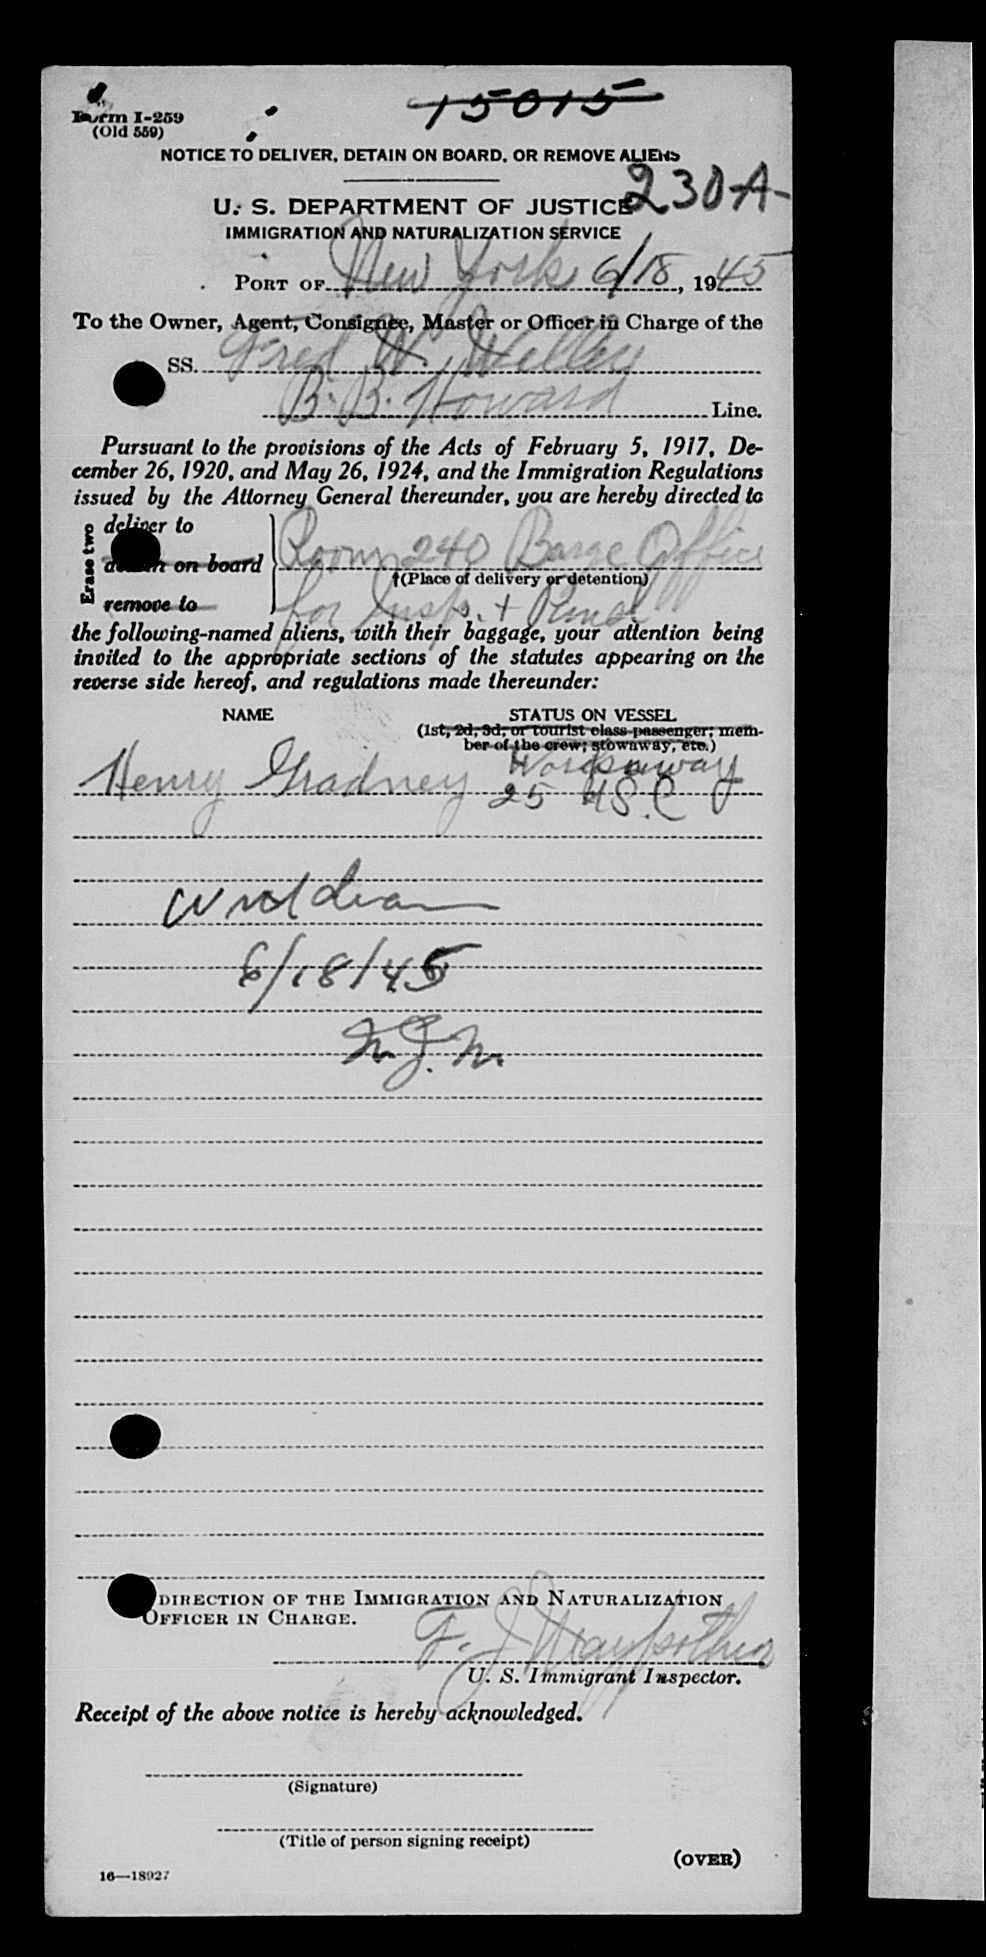 15015
Form I-259
(Old 559)
NOTICE TO DELIVER, DETAIN ON BOARD, OR REMOVE ALIENS
230-A
U. S. DEPARTMENT OF JUSTICE
IMMIGRATION AND NATURALIZATION SERVICE
PORT OF New York 6/18, 1945
To the Owner, Agent, Consignee, Master or Officer in Charge of the
SS. Fred W.
B. B. Howard Line.
Pursuant to the provisions of the Acts of February 5, 1917, De-
cember 26, 1920, and May 26, 1924, and the Immigration Regulations
issued by the Attorney General thereunder, you are hereby directed to
Erase two
deliver to
detain on board Room 240 Barge Office
†(Place of delivery or detention)
remove to for Insp. +
the following-named aliens, with their baggage, your attention being
invited to the appropriate sections of the statutes appearing on the
reverse side hereof, and regulations made thereunder:
NAME STATUS ON VESSEL
(1st, 2d, 3d, or tourist class passenger; mem-
ber of the crew; stowaway, etc.)
Workaway
Henry Gradney 25 USC
6/18/45
DIRECTION OF THE IMMIGRATION AND NATURALIZATION
OFFICER IN CHARGE.
F. J.
U. S. Immigrant Inspector.
Receipt of the above notice is hereby acknowledged.
(Signature)
(Title of person signing receipt)
(OVER)
16—18927